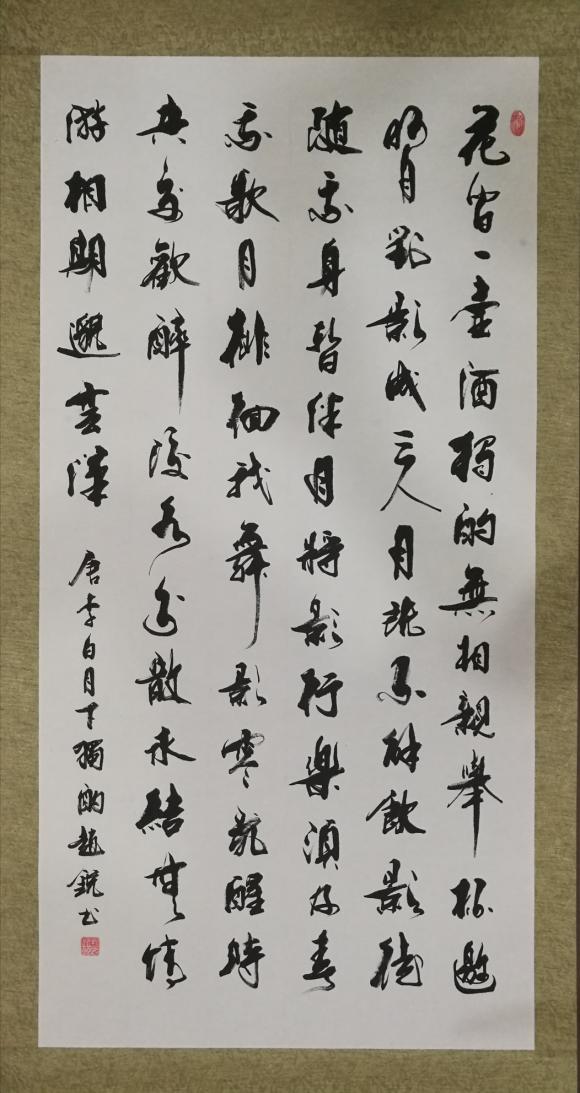 花間一壺酒獨酌無相親舉杯邀
明月對影成三人月既不解飲影徒
隨我身暫伴月將影行樂須及春
我歌月徘徊我舞影零亂醒時
共交歡醉後各分散永結無情
游相期邈雲漢
唐李白月下獨酌趙銳書